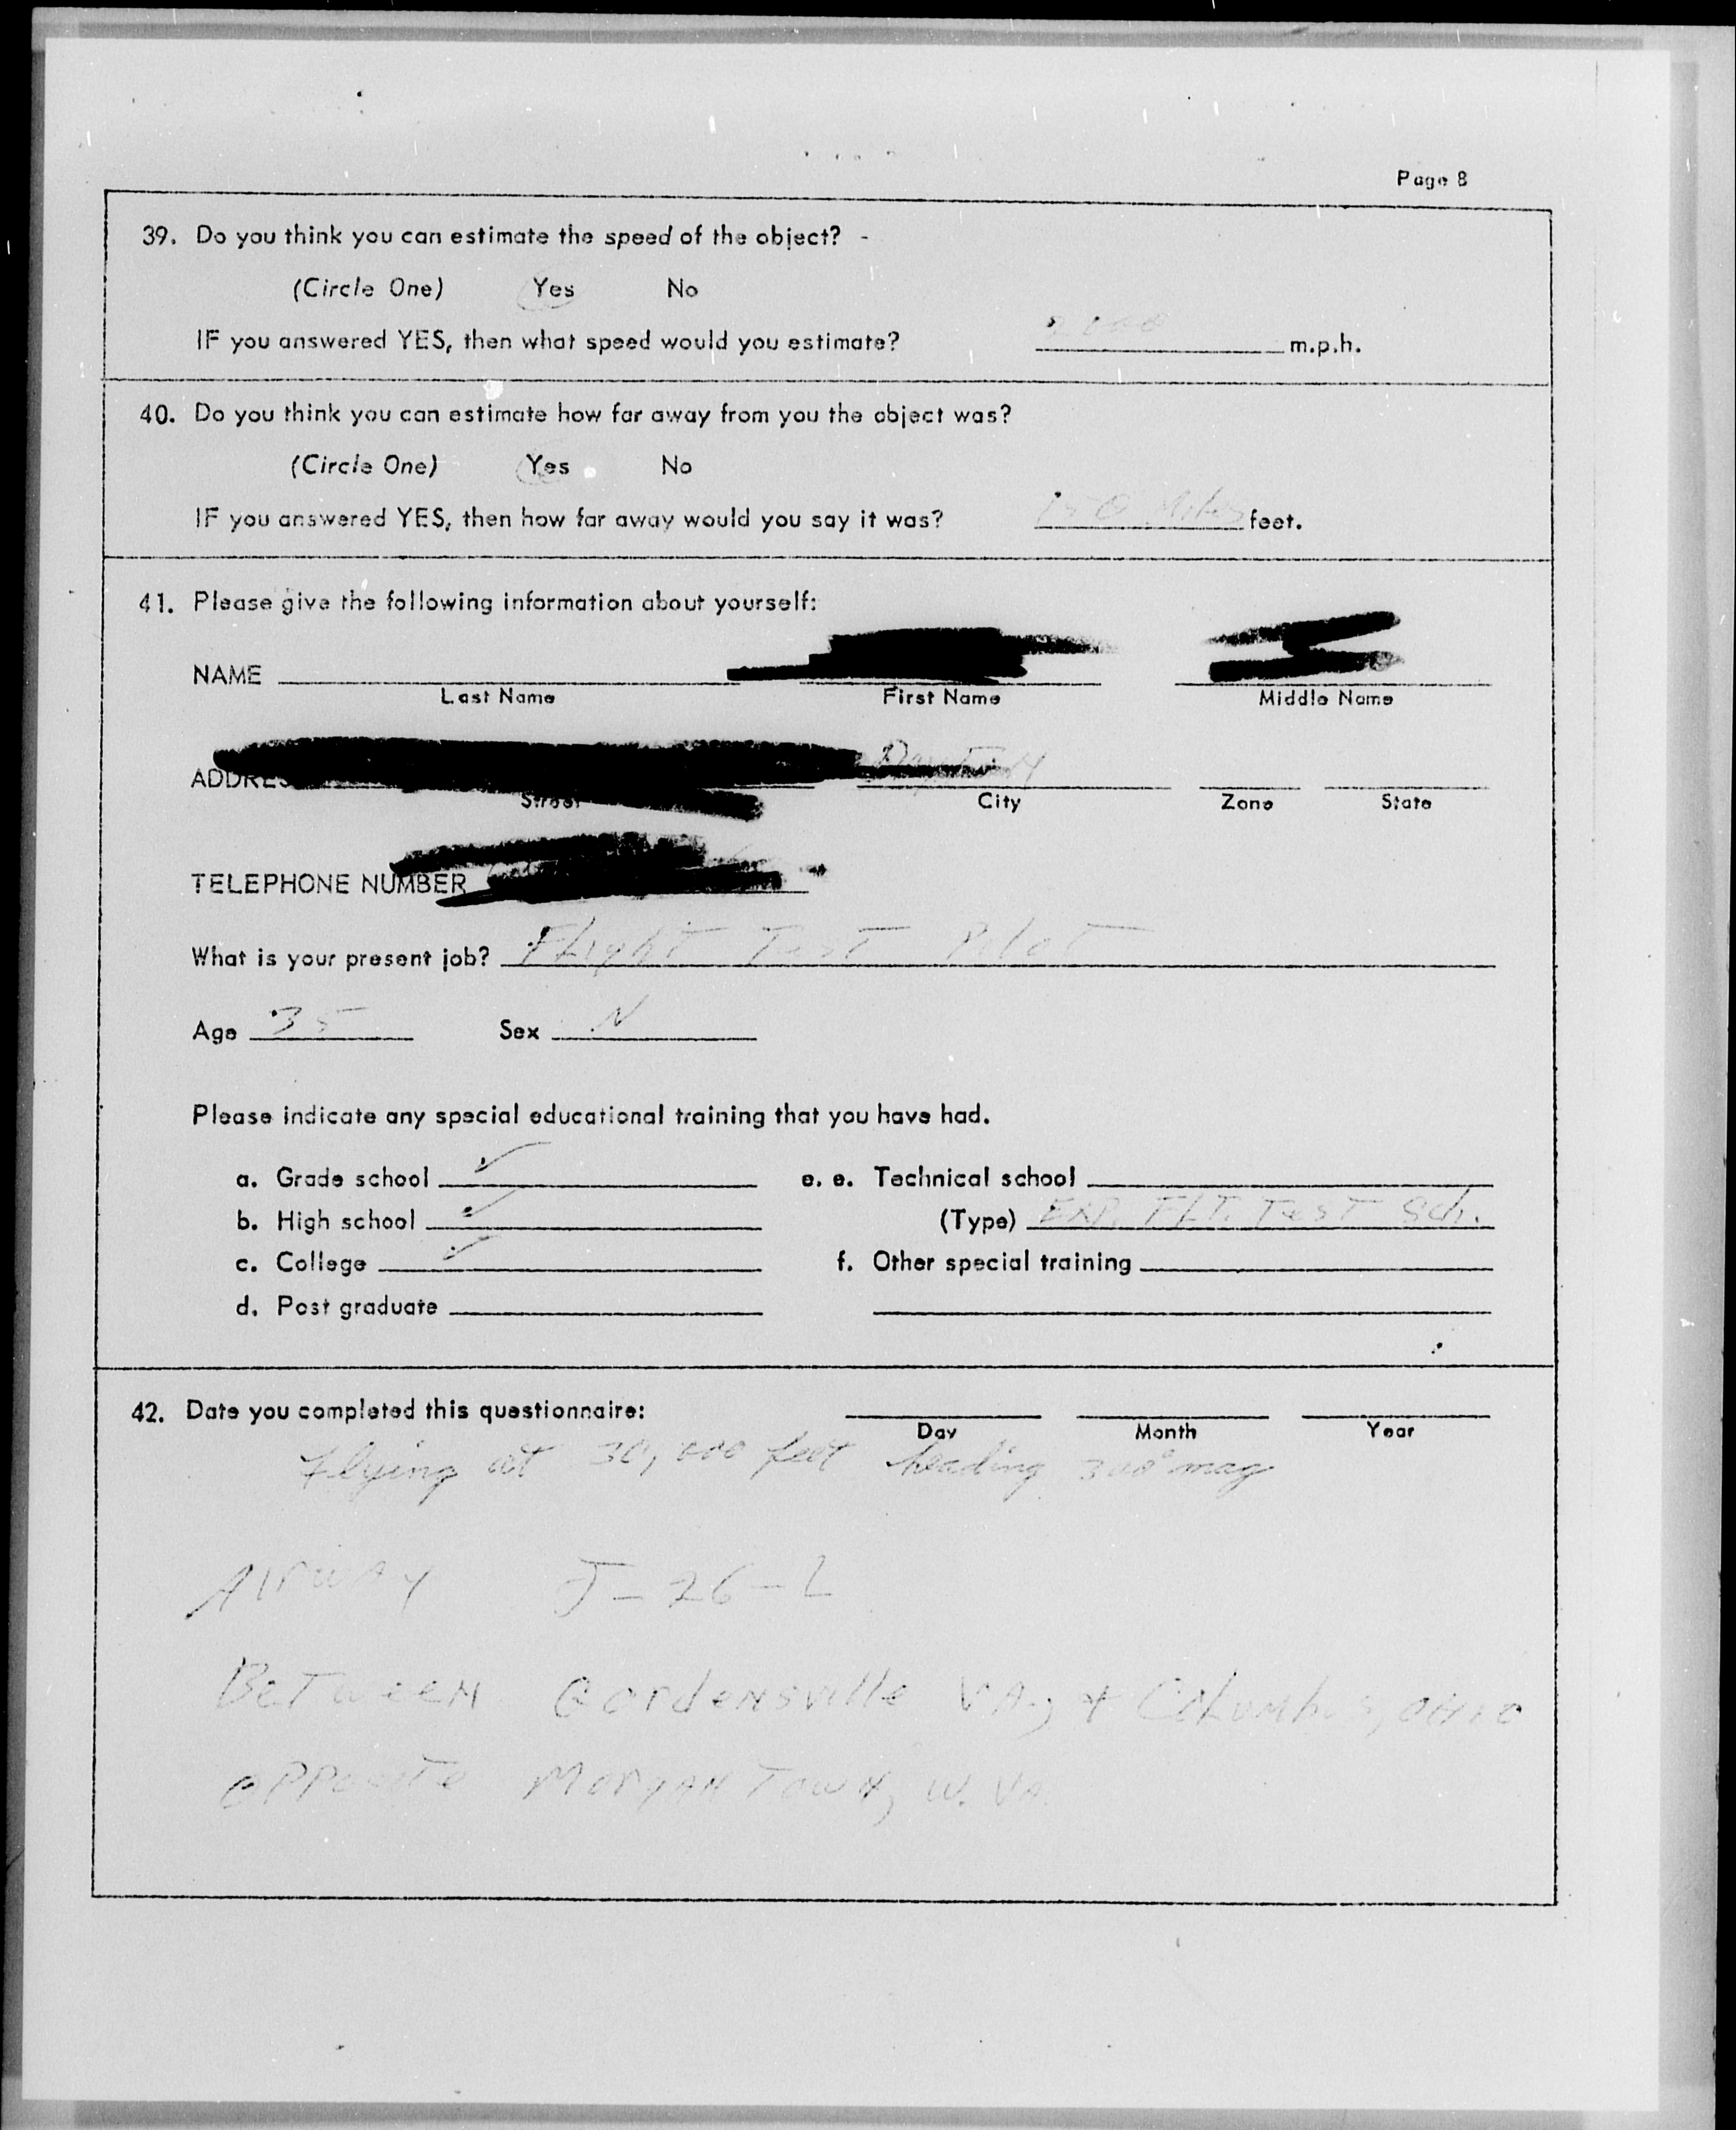 Page 8
39. Do you think you can estimate the speed of the object? -
(Circle One) Yes No
IF you answered YES, then what speed would you estimate? 2000 m.p.h.
40. Do you think you can estimate how far away from you the object was?
(Circle One) Yes No
IF you answered YES, then how far away would you say it was? 150 Miles feet.
41. Please give the following information about yourself:
NAME
Last Name First Name Middle Name
Dayton
ADDRES
Street City Zone State
TELEPHONE NUMBER
What is your present job? Flight Test Pilot
Age 35 Sex
Please indicate any special educational training that you have had.
a. Grade school ✓ e. e. Technical school
b. High school ✓ (Type) EXP. FLT. TesT Sch.
c. College ✓ f. Other special training
d. Post graduate
42. Date you completed this questionnaire:
Day Month Year
Flying at 30,000 feet heading 300° mag
AIrwAy J-26-L
BeTweeN GordeNsville VA., + Columbus, OHIO
OPPosiTe MorgANTowN, W. VA.